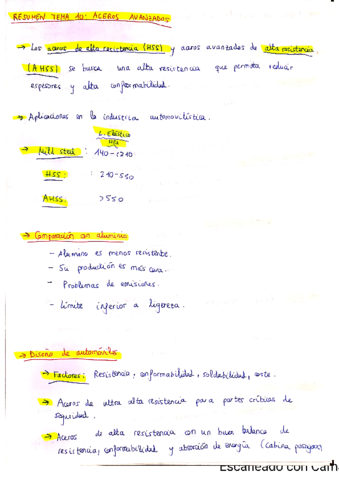 RESUMEN TEMA 10: ACEROS AVANZADOS
→ Los aceros de alta resistencia (HSS) y aceros avanzados de alta resistencia
(AHSS) se busca una alta resistencia que permita reducir
espesores y alta conformabilidad.
→ Aplicaciones en la industria automovilística.
L. Elástico
MPa
→ Mild steel : 140-210
HSS: : 210-550
AHSS: >550
→ Comparación con aluminio
- Aluminio es menos resistente.
- Su producción es más cara.
- Problemas de emisiones.
- Límite inferior a ligereza.
→ Diseño de automóviles
→ Factores: Resistencia, conformabilidad, soldabilidad, coste.
→ Aceros de ultra alta resistencia para partes críticas de
seguridad.
→ Aceros de alta resistencia con un buen balance de
resistencia, conformabilidad y absorción de energía (cabina pasajeros)
Escaneado con Cam